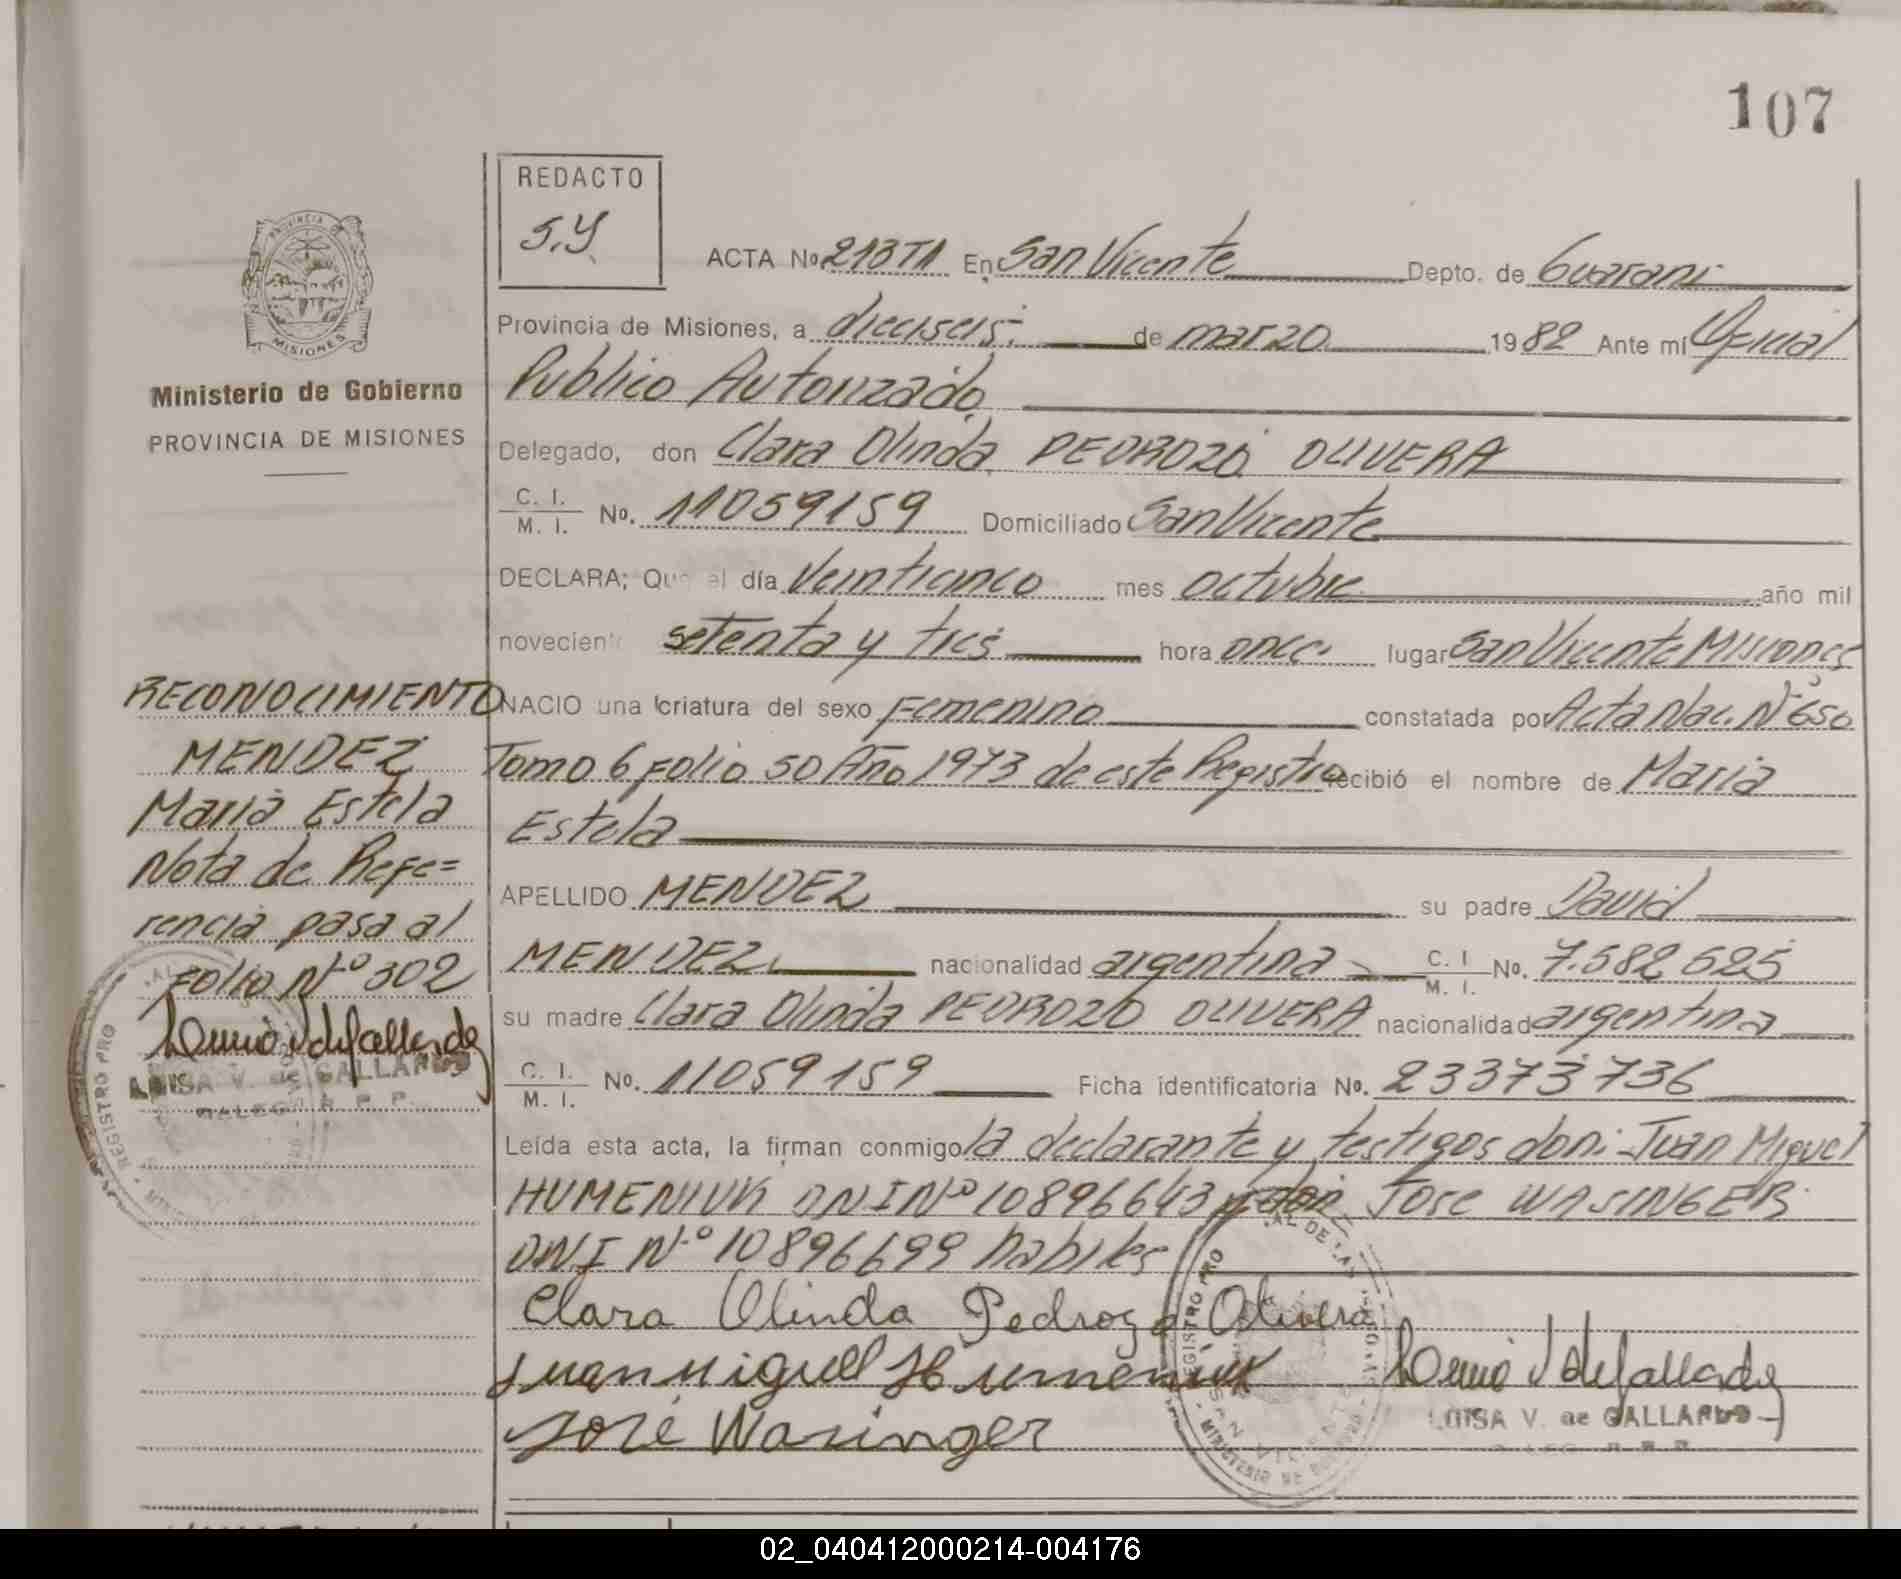 107
REDACTO
S.Y.
PROVINCIA DE
MISIONES
Ministerio de Gobierno
PROVINCIA DE MISIONES
ACTA No 213T1 En San Vicente Depto. de Guarani
Provincia de Misiones, a dieciseis de marzo 1982 Ante mí Oficial
Publico Autorizado
Delegado, don Clara Olinda PEDROZO OLIVERA
C. I. / M. I. No. 11059159 Domiciliado San Vicente
DECLARA; Que el día Veinticinco mes octubre año mil
novecient setenta y tres hora once lugar San Vicente Misiones
NACIO una criatura del sexo Femenino constatada por Acta Nac. Nº 650
Tomo 6 Folio 50 Año 1973 de este Registro recibió el nombre de Maria
Estela
APELLIDO MENDEZ su padre David
MENDEZ nacionalidad argentina C. I. / M. I. No. 7.582 525
su madre Clara Olinda PEDROZO OLIVERA nacionalidad argentina
C. I. / M. I. No. 11059159 Ficha identificatoria No. 23373736
Leída esta acta, la firman conmigo la declarante y testigos don: Juan Miguel
HUMENIUK DNI Nº 10896643 y don JOSE WASINGER
DNI Nº 10896699 habiles
Clara Olinda Pedrozo Olivera
Juan Miguel Humeniuk
José Wasinger
LUISA V. de GALLARDO
RECONOCIMIENTO
MENDEZ
Maria Estela
Nota de Refe=
rencia pasa al
Folio Nº 302
LUISA V. de GALLARDO
02_040412000214-004176